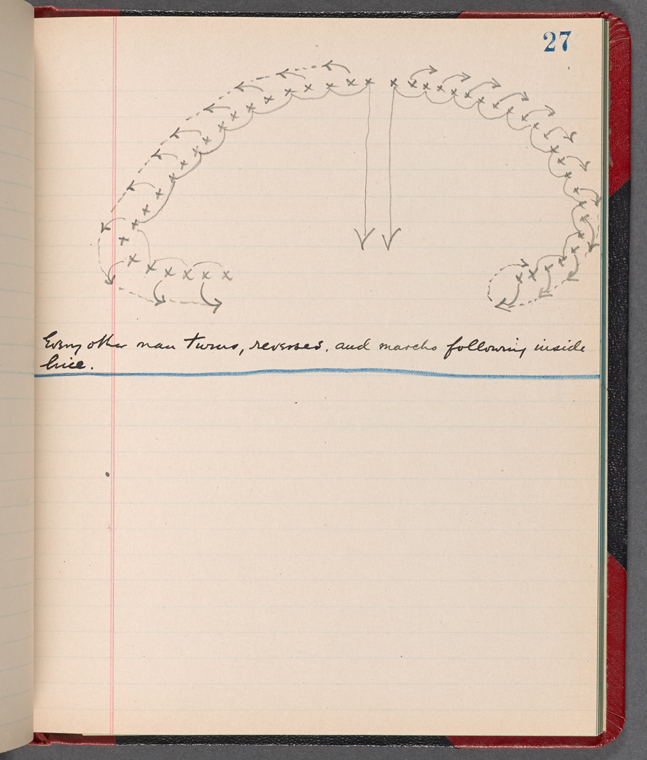 27
Every other man turns, reverses, and marches following inside
line.